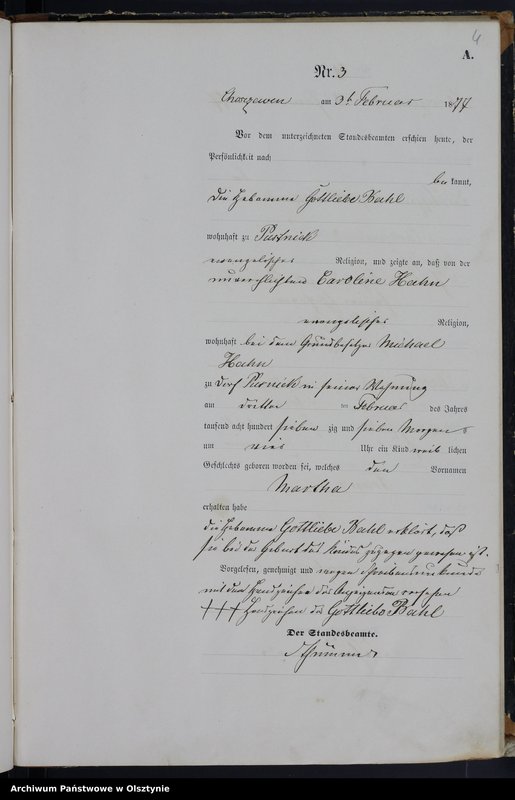 4
A.
Nr. 3
am 3t. Februar 1877
Vor dem unterzeichneten Standesbeamten erschien heute, der
Persönlichkeit nach
be kannt,
die Hebamme Gottliebe Bahl
wohnhaft zu Pustnick
evangelischer Religion, und zeigte an, daß von der
unverehelichten Caroline Hahn
evangelischer Religion,
wohnhaft bei dem Grundbesitzer Michael
Hahn
zu Dorf in seiner Wohnung
am dritten ten Februar des Jahres
tausend acht hundert sieben zig und sieben Morgens
um vier Uhr ein Kind weib lichen
Geschlechts geboren worden sei, welches den Vornamen
Martha
erhalten habe
die Hebamme Gottliebe Bahl erklärt, daß
sie bei der Geburt des Kindes zugegen gewesen ist.
Vorgelesen, genehmigt und wegen Schreibensunkunde
mit dem Handzeichen des Anzeigenden versehen
+++ Handzeichen der Gottliebe Bahl
Der Standesbeamte.
Archiwum Państwowe w Olsztynie